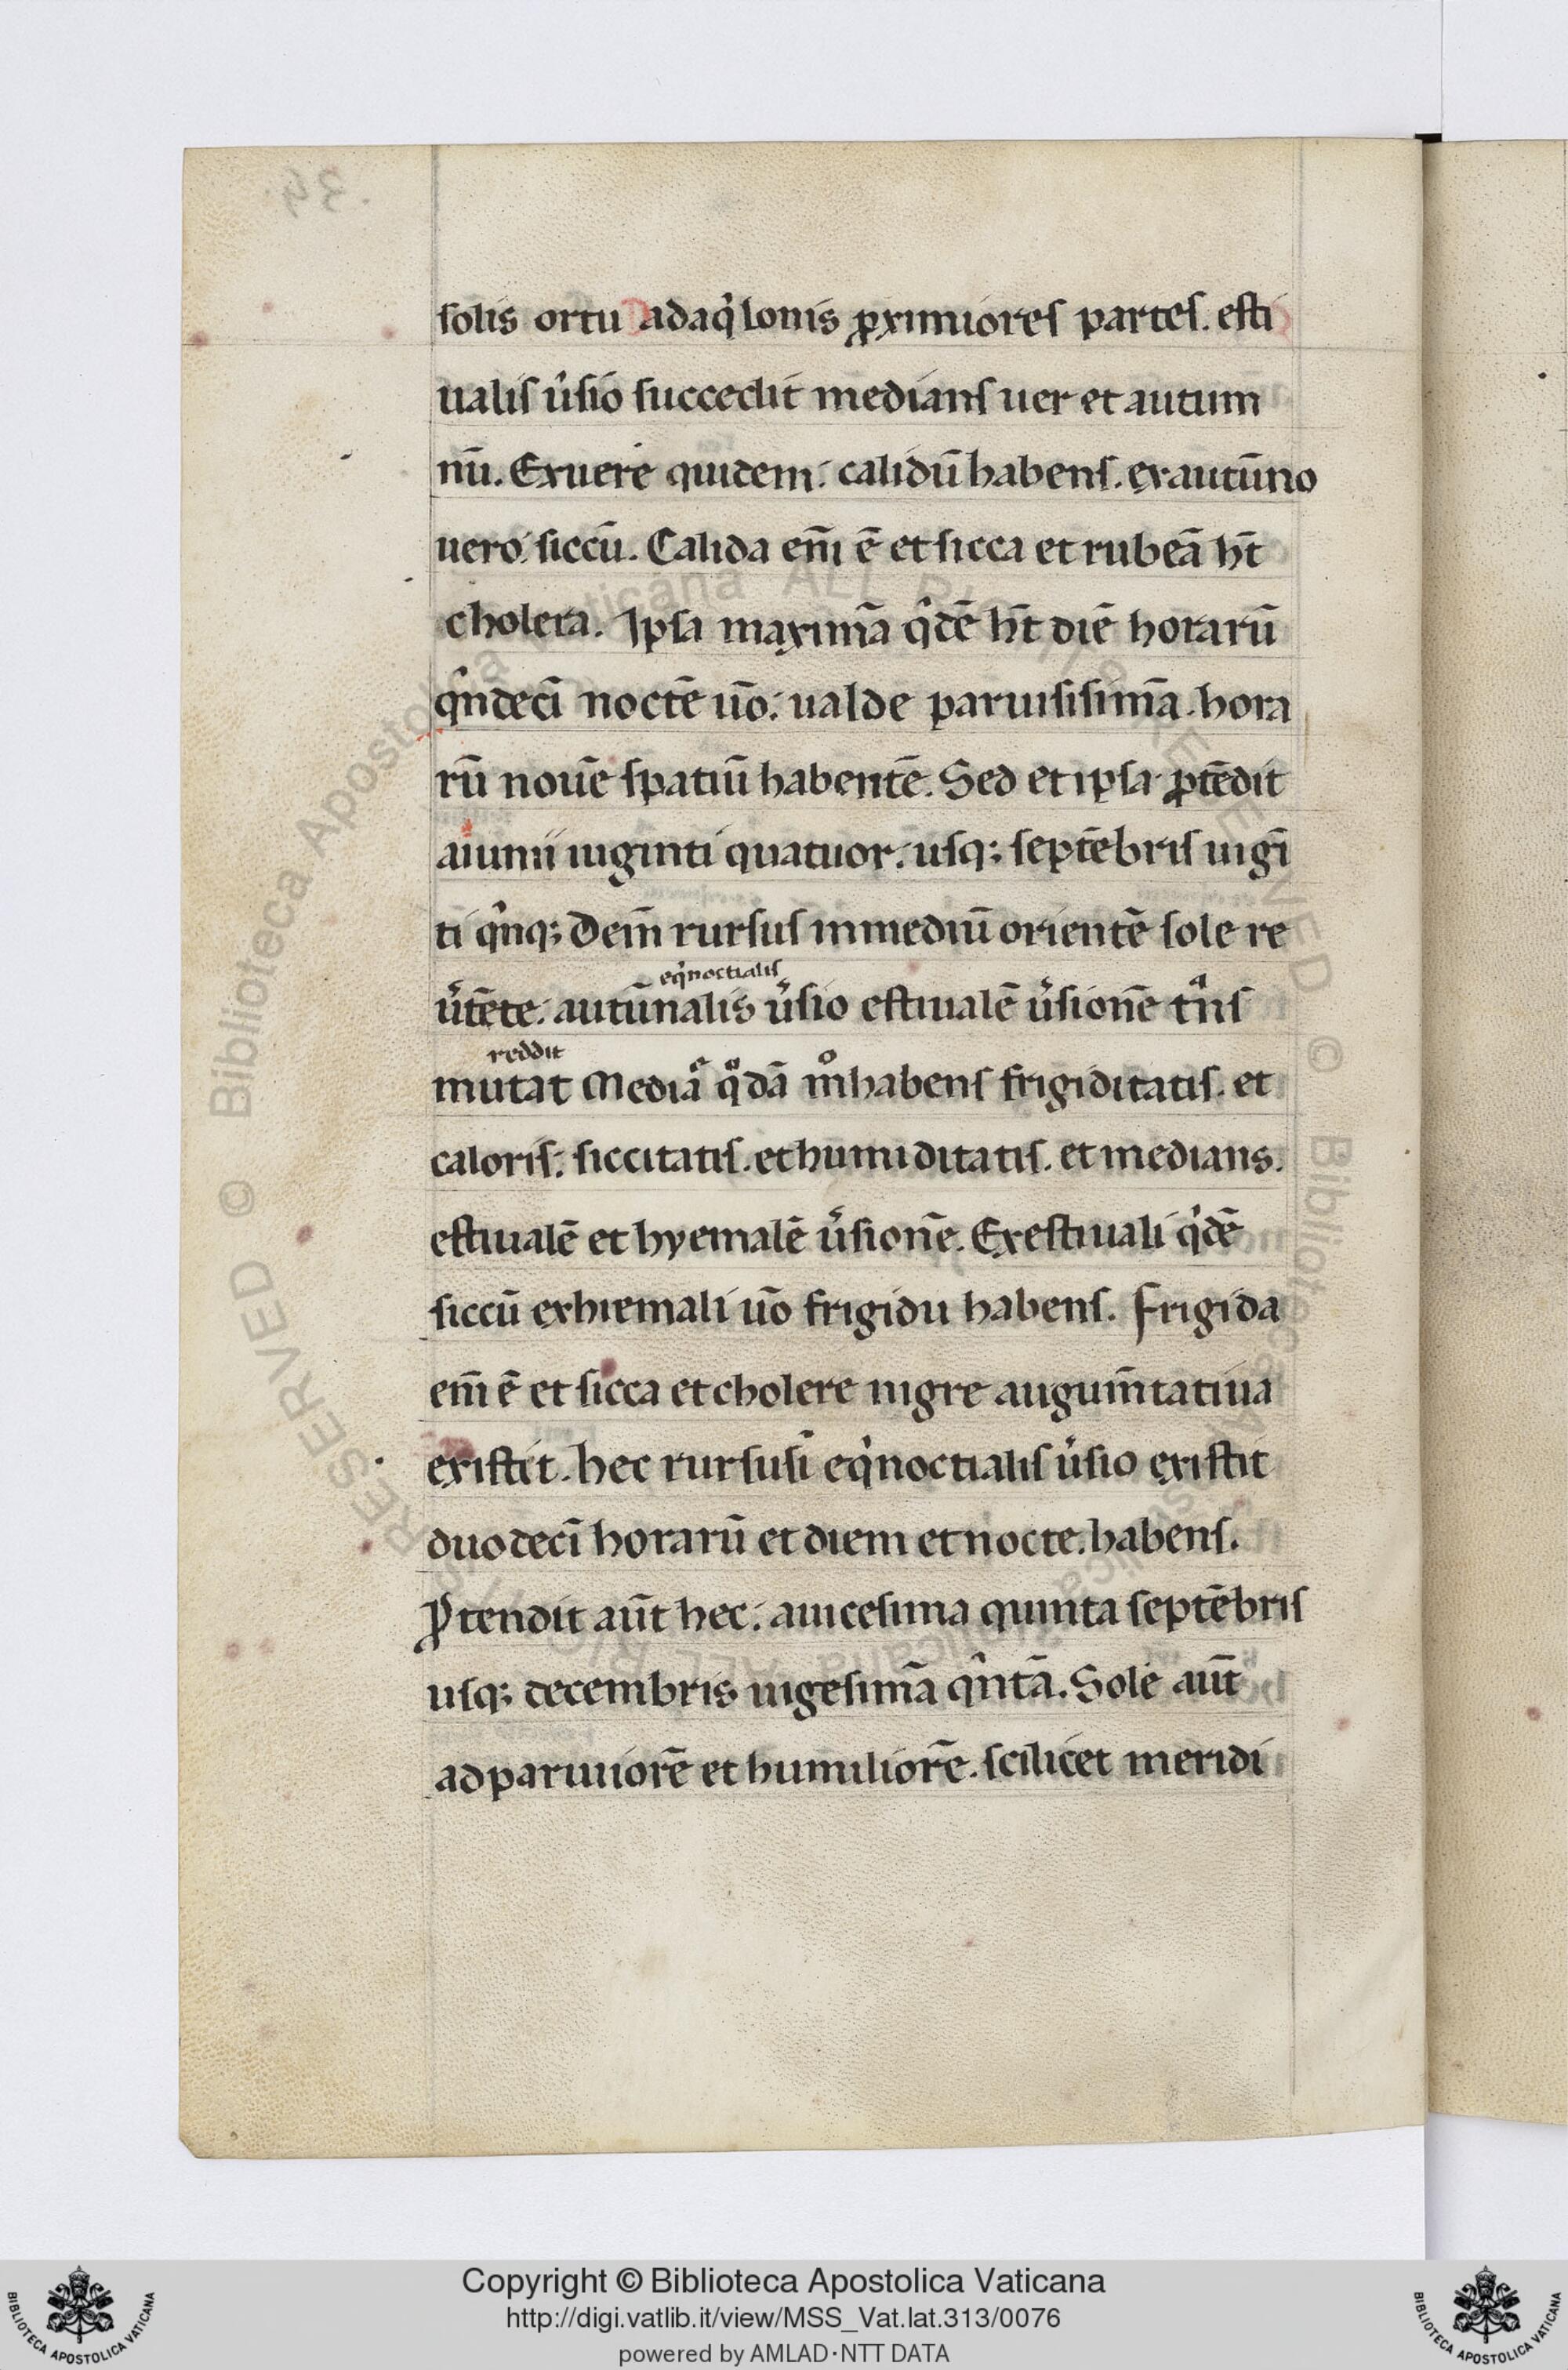 solis ortu adaq̉lonis ꝓximiores partes. esti
ualis u̓sio succedit medians uer et autum
nū. Ex uere quidem. calidū habens. ex autūno
uero. siccū. Calida eni̅ ē et sicca et rubeā ht̅
cholera. Ipsa maximā q̉dē ht̅ diē horarū
q̉ndeci̅ noctē uo̅. ualde paruisisimā. hora
rū nouē spatiū habentē. Sed et ipsa ꝓtēdit
aiunii uiginti quatuor. usq; septēbris uigī
ti q̉nq; Dein̅ rursus inmediū orientē sole re
eq̉noctialis
u̓tēte. autūnalis u̓sio estiualē u̓sionē tᵃns
reddit
mutat Mediā q̊dā m̊ habens frigiditatis. et
caloris. siccitatis. et humiditatis. et medians.
estiualē et hyemalē u̓sionē. Ex estiuali q̉dē
siccū ex hiemali uo̅ frigidu habens. Frigida
eni̅ ē et sicca et cholere nigre augum̅tatiua
existit. hec rursusi̅ eq̉noctialis u̓sio existit
duodeci̅ horarū et diem et nocte. habens.
Ꝓtendit aut̅ hec. auicesima quinta septēbris
usq; decembris uigesimā q̉ntā. Sole aut̅
ad paruiorē et humiliorē. scilicet meridi
34.
Copyright © Biblioteca Apostolica Vaticana
http://digi.vatlib.it/view/MSS_Vat.lat.313/0076
powered by AMLAD·NTT DATA
BIBLIOTECA APOSTOLICA VATICANA
BIBLIOTECA APOSTOLICA VATICANA